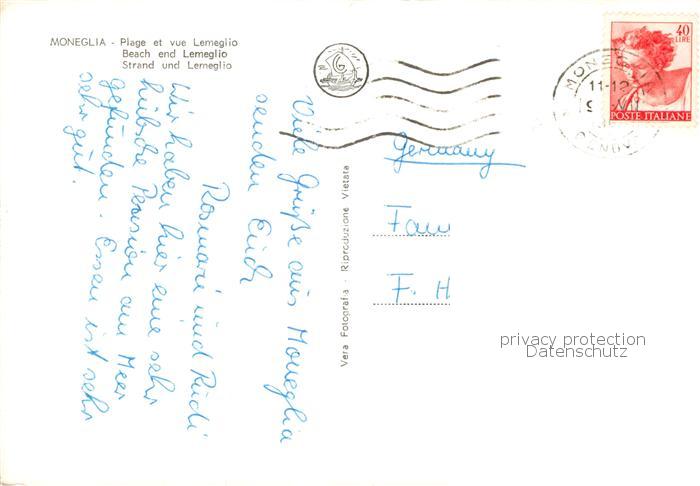 MONEGLIA - Plage et vue Lemeglio
Beach end Lemeglio
Strand und Lemeglio
Viele Grüße aus Moneglia
senden Euch
Rosmarie und Rudi
Wir haben hier eine sehr
hübsche Pension am Meer
gefunden. Essen ist sehr
sehr gut.
Vera Fotografia - Riproduzione Vietata
40
LIRE
POSTE ITALIANE
11-12
Germany
Fam
F. H
privacy protection
Datenschutz